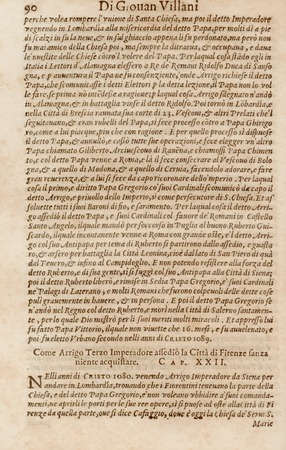 90 Di Giouan Villani
perche volea rompere l'unione di Santa Chiesa, ma poi il detto Imperadore
vegnendo in Lombardia alla misericordia del detto Papa, per molti di a pie
di scalzi in su la neue, & in sul ghiaccio appena li fu perdonato, ma però non
fu mai amico della Chiesa poi, ma sempre la
le inuestite delle Chiese contro l volere del Papa. Per laqual cosa
Italia e Lettori d'Alamagna elessero a Re de Romani Ridolfo Duca di Sanso
gna, e'l Papa ne fu consenziente, onde Arrigo richiese il detto
Papa, che scomunicasse i detti Elettori per la detta lezione, il Papa non lo vol
le fare, se prima
in Alamagna, & in battaglia vinse il detto Ridolfo. Poi tornò in Lōbardia, e
nella Città di Brescia raunata sua corte di 23. Vescoui, & altri Prelati che'l
seguitauano, & eran rubelli del Papa, si fece proporre cosa a Papa Ghirigo
ro, come a lui piacque, piu che con ragione. E per quello processo il dispuose
il detto Papa, & annullò, e cassò tutte sue operazioni, e fece elegger vn'altro
Papa chiamato Giliberto, Arciuescouo di Rauēna, e chiamossi Papa Chimenti
e, col detto Papa venne a Roma, & là si fece consecrare al Vescouo di Bolo
gna, & a quello di Modona, & a quello di Ceruia, facendolo adorare, e fare
gran reuerenza, & a lui si fece da capo ricoronare dello'mperio. Per laqual
cosa il primo, e diritto Papa Gregorio co' suoi Cardinali scomunicò da capo il
detto Arrigo, e priuollo dello Imperio, sì come persecutore di S. Chiesa. Et as
soluette tutti i suoi Baroni di fio, e di saramento. Per laqual cosa il detto Arri
go assediò il detto Papa, e suoi Cardinali col fauore de' Romani in Castello
Santo Angelo, ilquale mandò per soccorso in Puglia al buono Ruberto Gui
scardo, ilquale incontanente venne a Roma con grande oste, e'l detto Arri
go col suo Antipapa per tema di Ruberto si partirono dallo assedio, e guastò
ro, & arsero in partita la Città Leonina, cioè dal lato di San Piero di quà
dal Teuero, & infino al Campidoglio. E non potendo resistere alla forza del
detto Ruberto, e di sua gente, si si fuggì col suo Antipapa alla Città di Siena;
poi il detto Ruberto liberò, e rimise in Sedia Papa Gregorio, e suoi Cardinali
ne' Palagi di Laterano, e molti Romani che furono colpeuoli delle dette cose
pulì grauemente in hauere, & in persona. E poi il detto Papa Gregorio se
n'andò nel Regno col detto Ruberto, e morì nella Città di Salerno santamen
te, per lo quale Dio mostrò per li suoi meriti molti miracoli. Et appresso lui
fu fatto Papa Vittorio, ilquale non viuette che 16. mesi, e fu auuelenato, e
poi fu eletto Urbano secondo nelli anni di CRISTO 1080.
Come Arrigo Terzo Imperadore assediò la Città di Firenze sanza
niente acquistare. CAP. XXII.
NElli anni di CRISTO 1080. venendo Arrigo Imperadore da Siena per
andare in Lombardia, trouando che i Fiorentini teneuano la parte della
Chiesa, e del detto Papa Gregorio, e non voleano vbbidire a' suoi comanda-
menti, ne aprirli le porti per sue ree opere, si si puose ad oste alla Città di Fi
renze da quella parte, que si dice Cafaggio, doue è oggi la Chiesa de' Serui S.
Marie